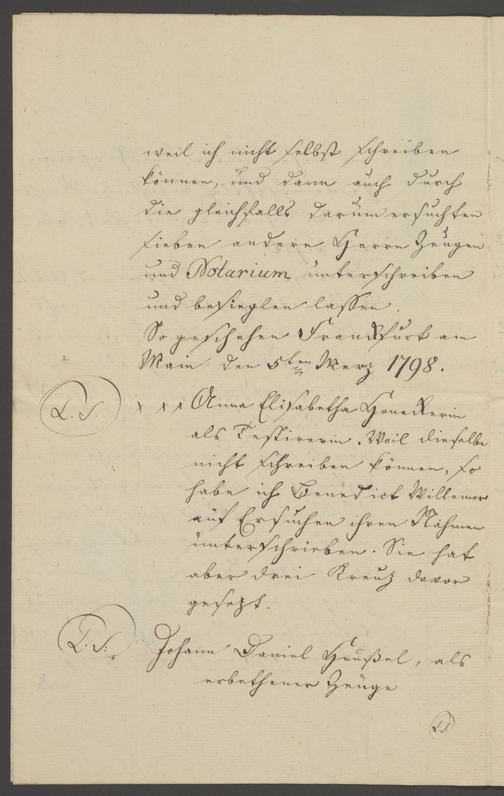 weil ich nicht selbst schreiben
können, und dann auch durch
die gleichfalls darum ersuchten
sieben andere Herrn Zeugen
und Notarium unterschreiben
und besieglen lassen.
So geschehen Franckfurt am
Main den 5ten Merz 1798.
L. S. x x x Anna Elisabetha Honeckerin
als Testirerin. Weil dieselbe
nicht schreiben können, so
habe ich Benedict Willemer
auf Ersuchen ihren Nahmen
unterschrieben. Sie hat
aber drei Kreuz davor
gesezt.
L. S. Johann Daniel Heußel, als
erbethener Zeuge